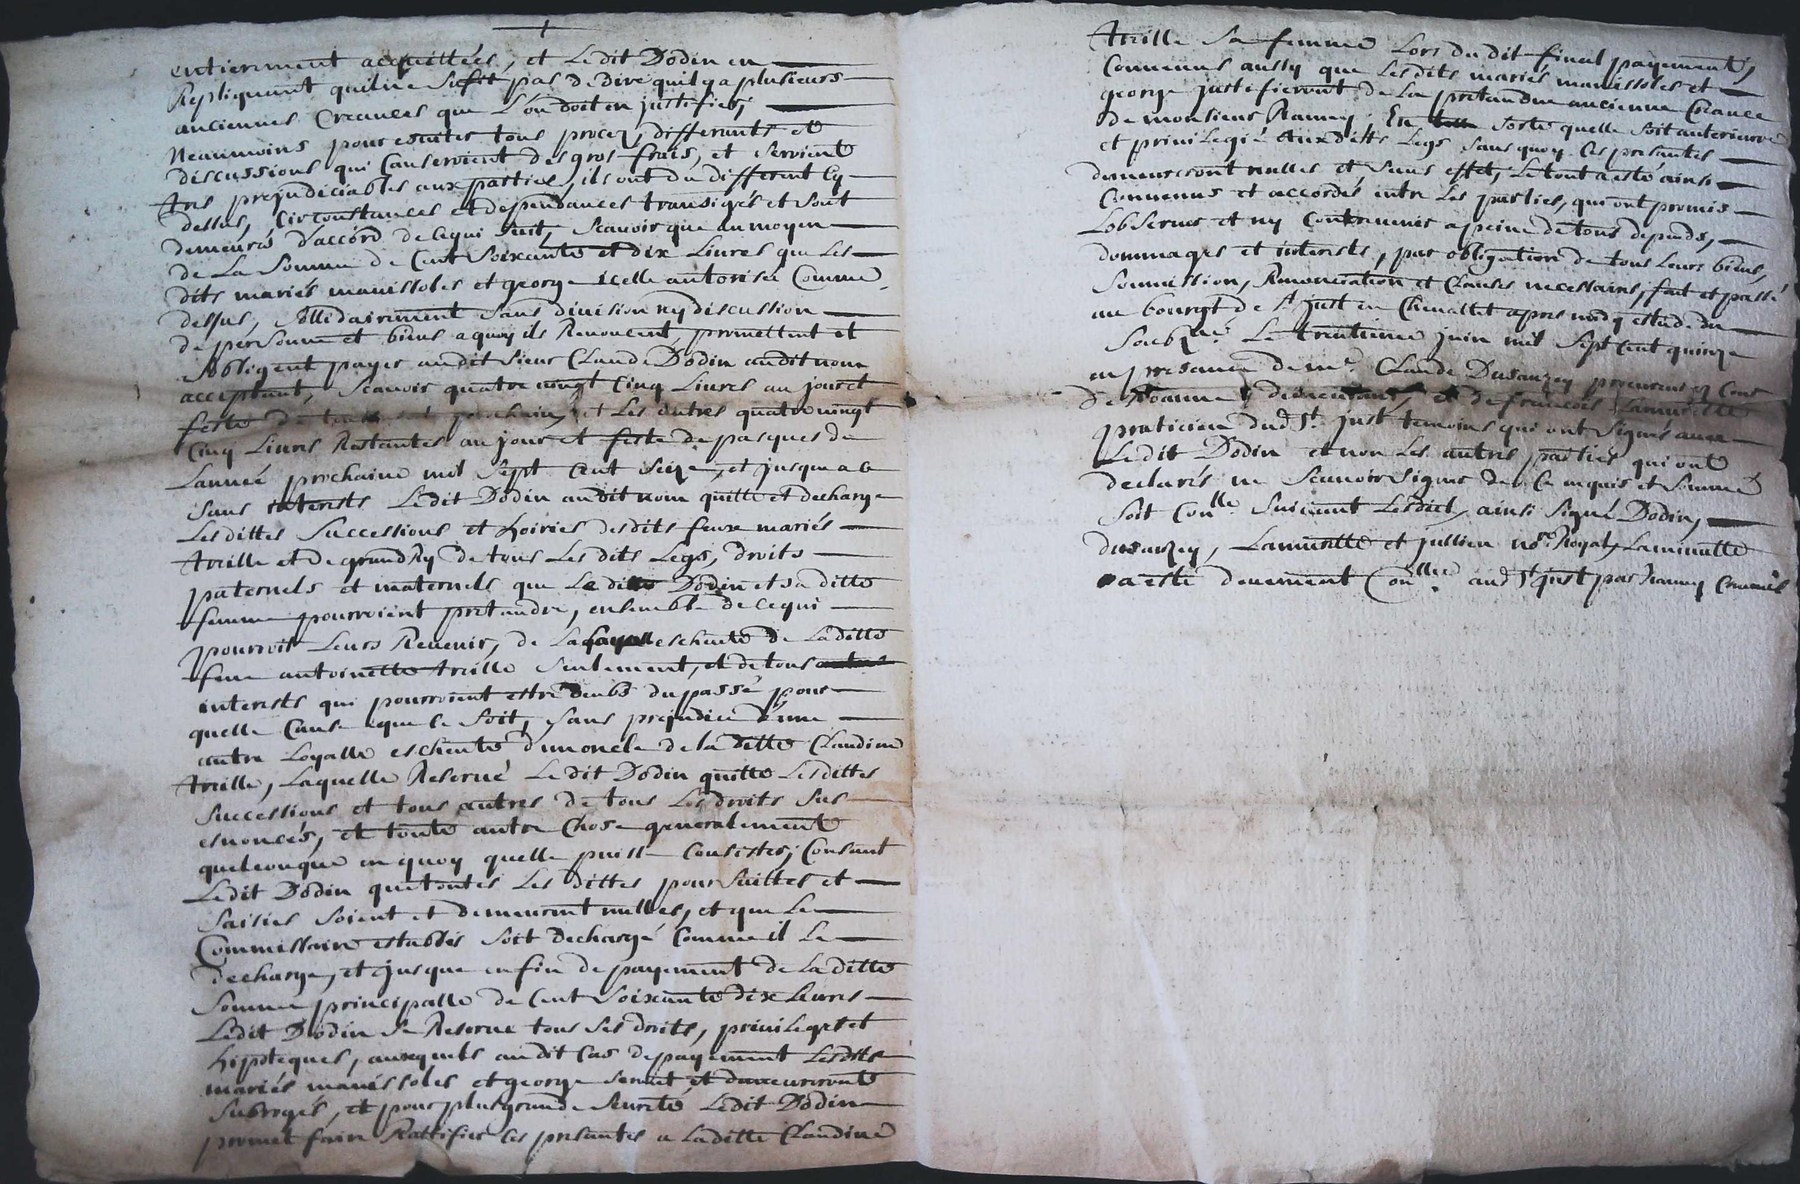 entierement acquittées, et Ledit Dodin en
Repliquant quil ne sufit pas de dire quil y a plusieurs
anciennes Creances que L'on doit en justifier,
Neaumoins pour esuiter tous procez, differants et
discussions qui Causeroient des gros frais, et seroient
tres prejudiciables aux parties, ils ont du different Cy
dessus, Circonstances et dependances transigés et sont
demeurés d'accord de Ce qui suit, scauoir que au moyen
de La Somme de Cent Soixante et dix Liures que Les
dits mariés mauissoles et george icelle autorisée Comme
dessus, sollidairement sans diuision ny discussion
de personne et biens a quoy ils Renoncent, promettent et
sobligent payer audit Sieur Claude Dodin audit nom
acceptant, scauoir quatre vingt Cinq Liures au jour et
feste de prochain, et Les autres quatre vingt
Cinq Liures Restantes au jour et feste de pasques de
Lannée prochaine mil sept Cent seize, et jusque a Ce
sans interests Ledit Dodin audit nom quitte et decharge
Lesdittes successions et hoiries desdits feux mariés
treille et de grandRy de tous Lesdits Legs, droits
paternels et maternels que Le dit Dodin et sa ditte
femme pourroient pretandre, ensemble de Ce qui
pourroit Leurs Reuenir, de La escheute de Laditte
feue antoinette treille seulement, et de tous
interests qui pourroient estre deubs du passé pour
quelle Cause que Ce soit, sans prejudice d'une
autre Loyalle escheute d'un oncle de la ditte Claudine
treille, Laquelle Reserue Ledit Dodin quitte Lesdittes
successions et tous autres de tous Les droits sus
enoncés, et toute autre Chose generalement
quelconque en quoy quelle puisse Consister, Consent
Ledit Dodin que toutes Les dittes poursuittes et
saisies soient et demeurent nulles, et que Le
Commissaire establis soit dechargé Comme il Le
decharge, et jusque en fin de payement de La ditte
Somme principalle de Cent soixante dix Liures
Ledit Dodin se Reserue tous ses droits, priuileges et
hipoteques, auxquels audit Cas de payement Lesdits
mariés mauissoles et george seront et demeureront
subrogés, et pour plus grande seureté Ledit Dodin
promet faire Rattifier Ces presantes a Laditte Claudine
treille sa femme Lors du dit final payement,
Conuenus aussy que Lesdits mariés mauissoles et
george justifieront de La pretandue ancienne Creance
de monsieur Ramey, En sorte quelle soit anterieure
et priuilegié auxdits Legs sans quoy Ces presantes
demeureront nulles et sans effet, Le tout a esté ainsi
Conuenus et accordés entre Les parties, qui ont promis
Lobseruer et ny Contreuenir a peine de tous depends,
dommages et interests, par obligation de tous Leurs biens,
Soumission, Renonciation et Clauses necessaires, fait et passé
au bourgt de St just en Cheuallet apres midy estude du
Soubzné. Le trentieme juin mil sept Cent quinze
en presance de me. Claude Dusauzey procureur ez Cour
de Roanne y demeurant, et de francois Lamurette
praticien dud St. just temoins qui ont signés auec
Ledit Dodin et non Les autres parties qui ont
declarés ne scauoir signer de Ce enquis et sommés
soit Conlle suiuant Lesdict, ainsi signé Dodin,
dusauzey, Lamurette et jullien nore Royal, La minutte
a esté deuement Conllée aud St just par Ramey Commis